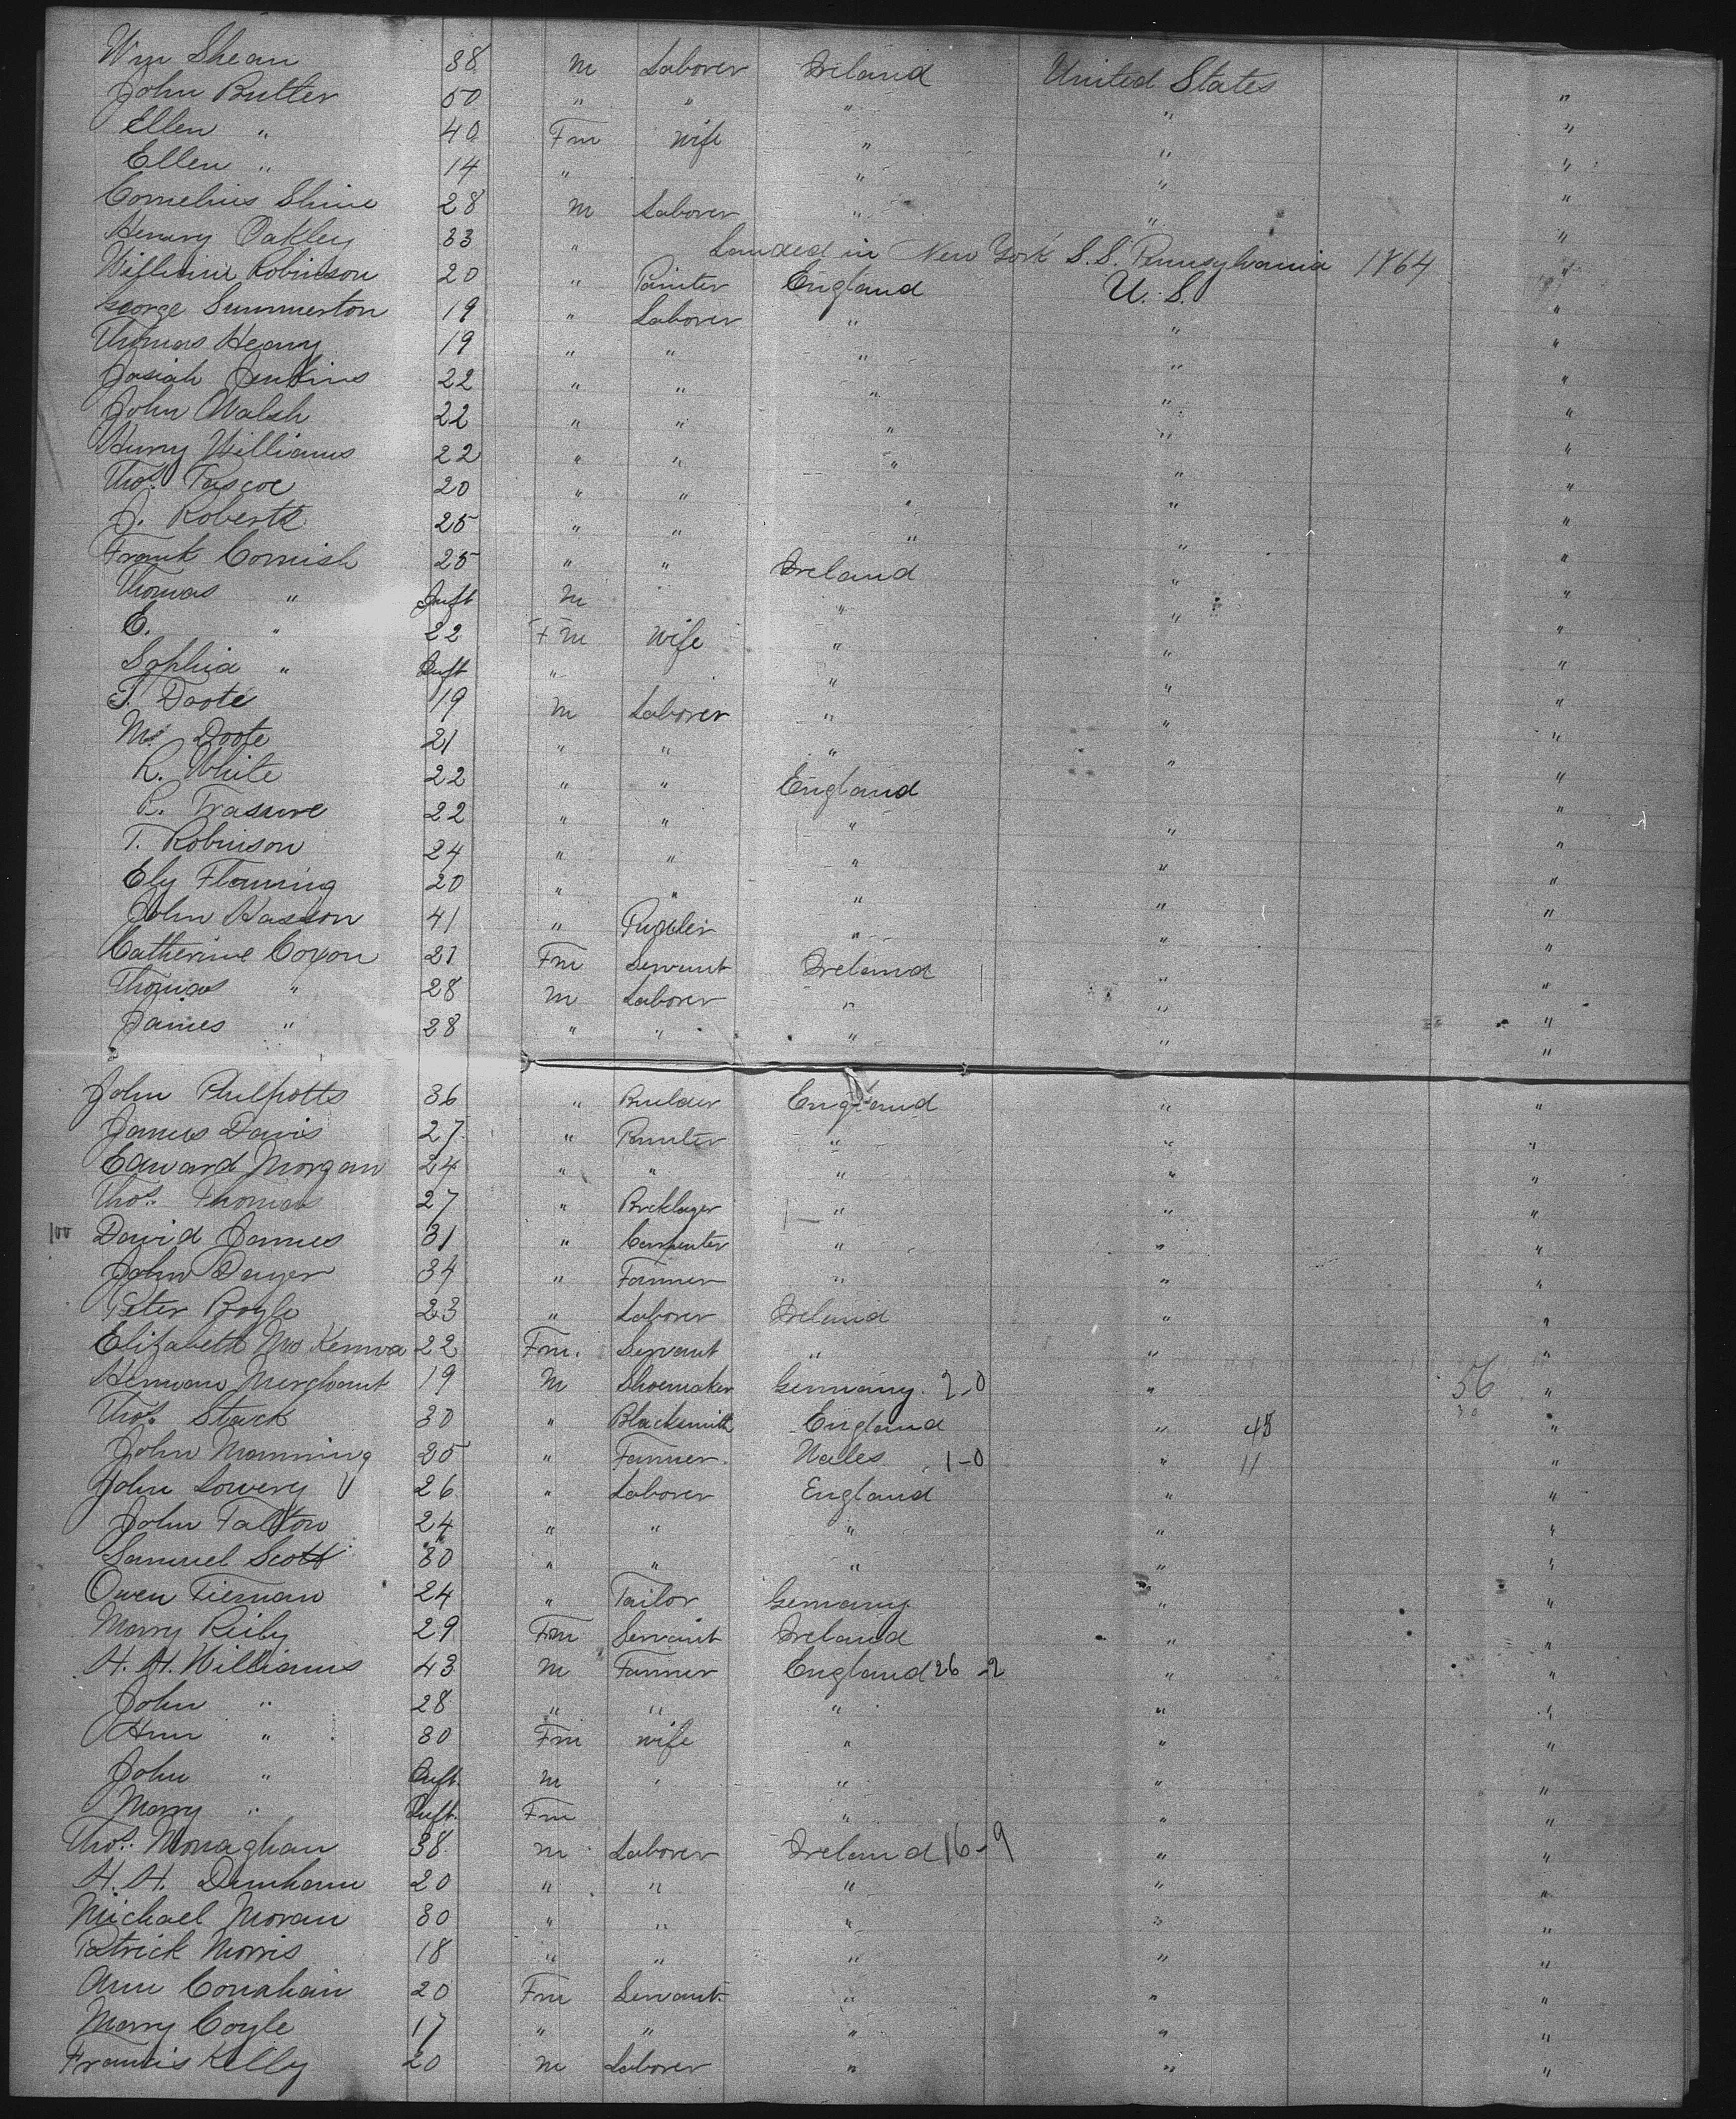 Wm Shean 38 m Laborer Ireland United States
John Butler 50 " " " " "
Ellen " 40 Fm wife " " "
Ellen " 14 " " " "
Cornelius Shine 28 m Laborer " " "
Henry Oakley 33 " Landed in New York S.S. Pennsylvania 1864 "
William Robinson 20 " Painter England U.S. "
George Summerton 19 " Laborer " " "
Thomas Heany 19 " " " " "
Josiah Jenkins 22 " " " " "
John Walsh 22 " " " " "
Henry Williams 22 " " " " "
Thos. Pascoe 20 " " " " "
J. Roberts 25 " " " " "
Frank Cornish 25 " " Ireland " "
Thomas " Inft m " " "
E. " 22 Fm wife " " "
Sophia " Inft " " " "
T. Doote 19 m Laborer " " "
Doote 21 " " " " "
R. White 22 " " England " "
R. 22 " " " " "
T. Robinson 24 " " " " "
Ely Flemming 20 " " " " "
John Hasson 41 " Pudler " " "
Catherine Coyon 21 Fm Servant Ireland " "
Thomas " 28 m Laborer " " "
James " 28 " " " " "
John Philpotts 36 " Builder England " "
James Davis 27 " Painter " " "
Edward Morgan 24 " " " " "
Thos. Thomas 27 " Bricklayer " " "
100 David James 31 " Carpenter " " "
John Dwyer 34 " Farmer " " "
Peter Boyle 23 " Laborer Ireland " "
Elizabeth 22 Fm. Servant " " "
Herman Merghant 19 m Shoemaker Germany. 2-0 " 56 "
Thos. Stack 30 " Blacksmith England " 45 "
John Manning 25 " Farmer. Wales 1-0 " 11 "
John Lowery 26 " Laborer England " "
John Talton 24 " " " " "
Samuel Scott 30 " " " " "
Owen Tiernan 24 " Tailor Germany " "
Marry Reily 29 Fm Servant Ireland " "
H. H. Williams 43 m Farmer England 26-2 " "
John " 28 " " " " "
Ann " 30 Fm wife " " "
John " Inft. m " " " "
Marry " Inft. Fm " " "
Thos. Monaghan 38 m Laborer Ireland 16-9 " "
H. H. Dunham 20 " " " " "
Michael Moran 30 " " " " "
Patrick Morris 18 " " " " "
Ann Conahain 20 Fm Servant " " "
Marry Coyle 17 " " " " "
Francis Kelly 20 m Laborer " " "